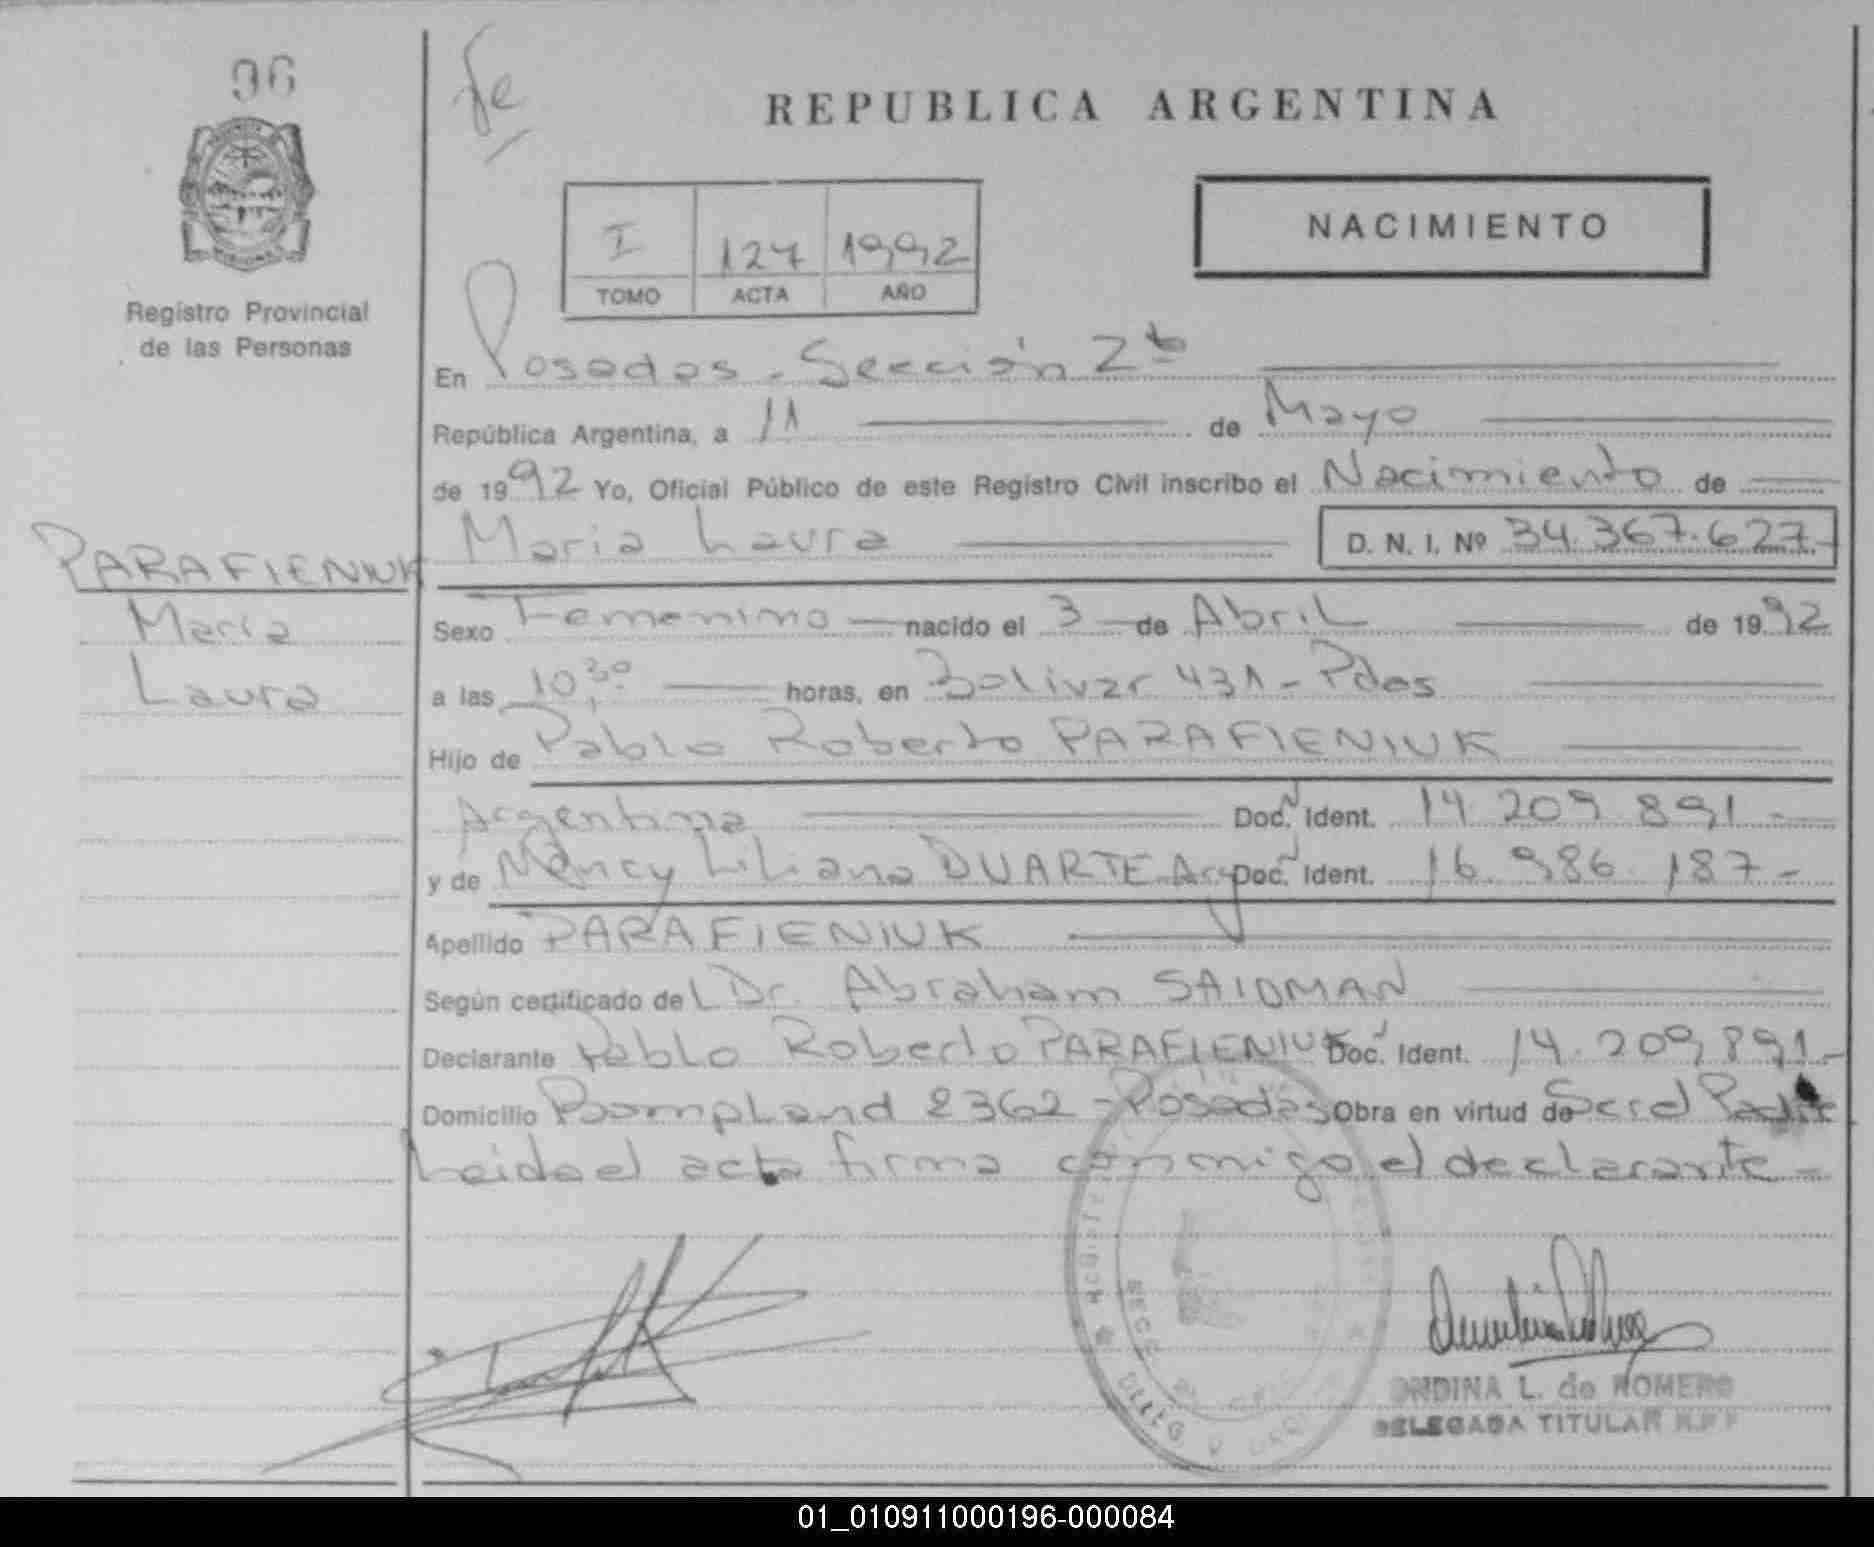 96
REPUBLICA ARGENTINA
NACIMIENTO
I 127 1992
TOMO ACTA AÑO
Registro Provincial
de las Personas
En Posadas - Sección 2ª
República Argentina, a 11 de Mayo
de 1992 Yo, Oficial Público de este Registro Civil inscribo el Nacimiento de
Maria Laura D. N. I. Nº 34.367.627-
PARAFIENIUK
Maria
Laura
Sexo Femenino nacido el 3 de Abril de 1992
a las 10,30 horas, en Bolivar 431 - Pdas
Hijo de Pablo Roberto PARAFIENIUK
Argentina Doc. Ident. 14.209.891-
y de Nancy Liliana DUARTE Arg Doc. Ident. 16.986.187-
Apellido PARAFIENIUK
Según certificado del Dr. Abraham SAIDMAN
Declarante Pablo Roberto PARAFIENIUK Doc. Ident. 14.209.891-
Domicilio Bompland 2362 - Posadas Obra en virtud de Ser el Padre
Leida el acta firma conmigo el declarante -
ONDINA L. de ROMERO
DELEGADA TITULAR R.P.P
01_010911000196-000084